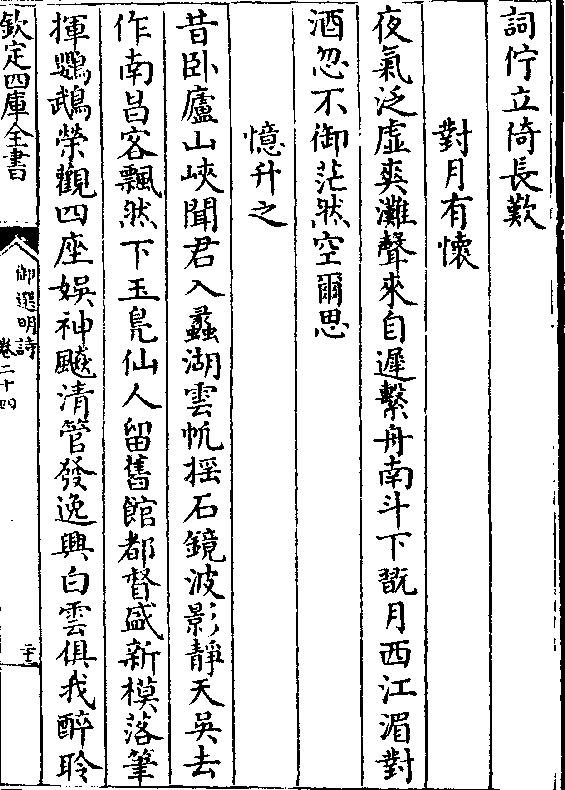 詞佇立倚長歎
對月有懷
夜氣泛虛爽灘聲來自遲繫舟南斗下翫月西江湄對
酒忽不御茫然空爾思
憶升之
昔卧廬山峽聞君入蠡湖雲帆揺石鏡波影靜天吳去
作南昌客飄然下玉鳬仙人留舊館都督盛新模落筆
揮鸚鵡榮觀四座娯神飇清管發逸興白雲俱我醉聆
欽定四庫全書
御選明詩
卷二十四